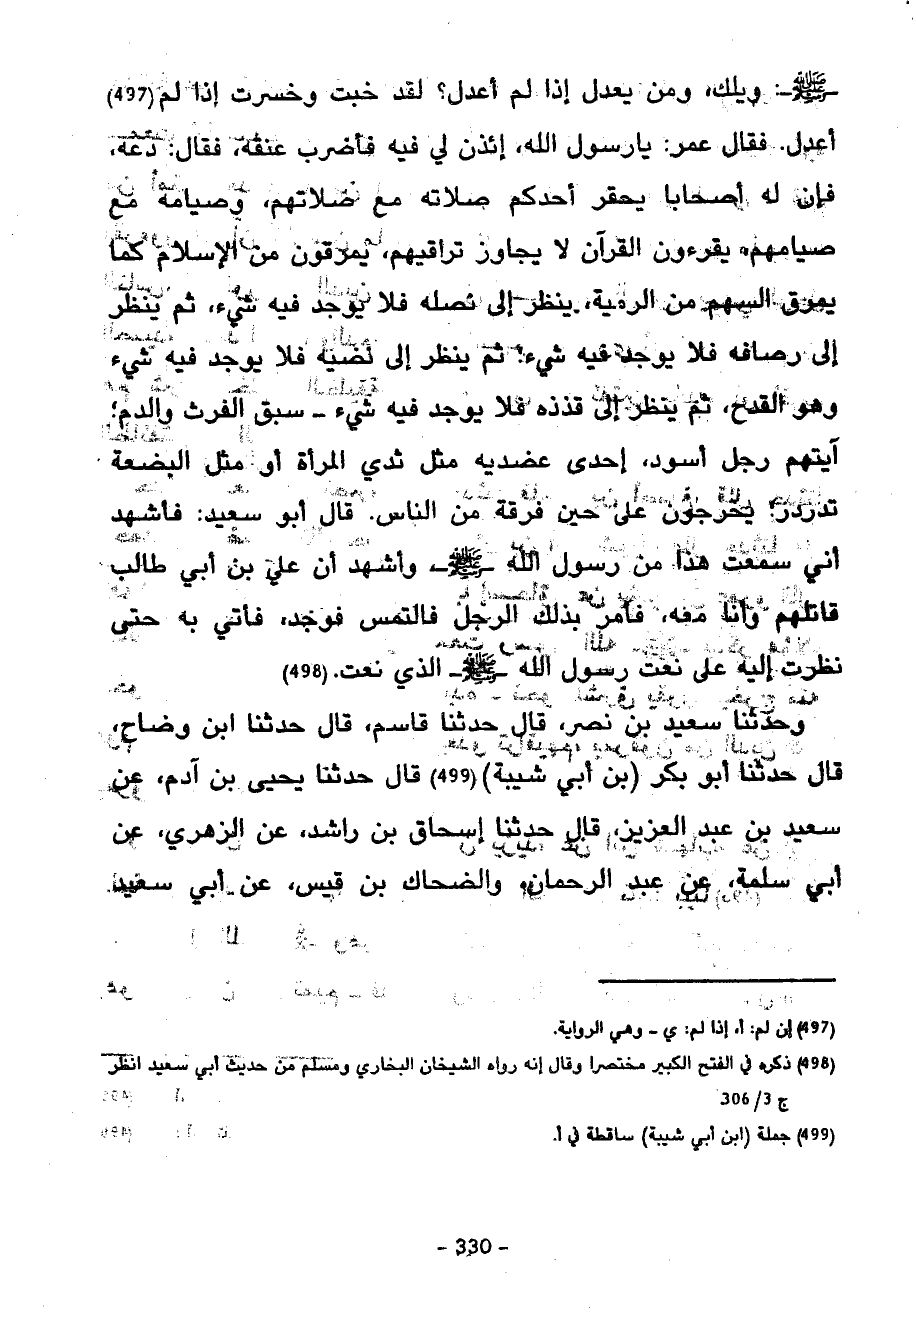 ـﷺـ: ويلك، ومن يعدل إذا لم أعدل؟ لقد خبت وخسرت إذا لم (497)
أعدل. فقال عمر: يارسول الله، إئذن لي فيه فأضرب عنقه، فقال: دعه،
فإن له أصحابا يحقر أحدكم صلاته مع صلاتهم، وصيامه مع
صيامهم، يقرءون القرآن لا يجاوز تراقيهم، يمرقون من الإسلام كما
يمرق السهم من الرمية، ينظر إلى نصله فلا يوجد فيه شيء، ثم ينظر
إلى رصافه فلا يوجد فيه شيء؛ ثم ينظر إلى نضيه فلا يوجد فيه شيء
وهو القدح، ثم ينظر إلى قذذه فلا يوجد فيه شيء ـ سبق الفرث والدم؛
آيتهم رجل أسود، إحدى عضديه مثل ثدي المرأة أو مثل البضعة
تدردر؛ يخرجون على حين فرقة من الناس. قال أبو سعيد: فأشهد
أني سمعت هذا من رسول الله ـﷺـ، وأشهد أن علي بن أبي طالب
قاتلهم وأنا معه، فأمر بذلك الرجل فالتمس فوجد، فأتي به حتى
نظرت إليه على نعت رسول الله ـﷺـ الذي نعت. (498)
وحدثنا سعيد بن نصر، قال حدثنا قاسم، قال حدثنا ابن وضاح،
قال حدثنا أبو بكر (بن أبي شيبة) (499) قال حدثنا يحيى بن آدم، عن
سعيد بن عبد العزيز، قال حدثنا إسحاق بن راشد، عن الزهري، عن
أبي سلمة، عن عبد الرحمان، والضحاك بن قيس، عن أبي سعيد
(497) إن لم: أ، إذا لم: ي ـ وهي الرواية.
(498) ذكره في الفتح الكبير مختصرا وقال إنه رواه الشيخان البخاري ومسلم من حديث أبي سعيد انظر
ج 3/ 306
(499) جملة (ابن أبي شيبة) ساقطة في أ.
- 330 -